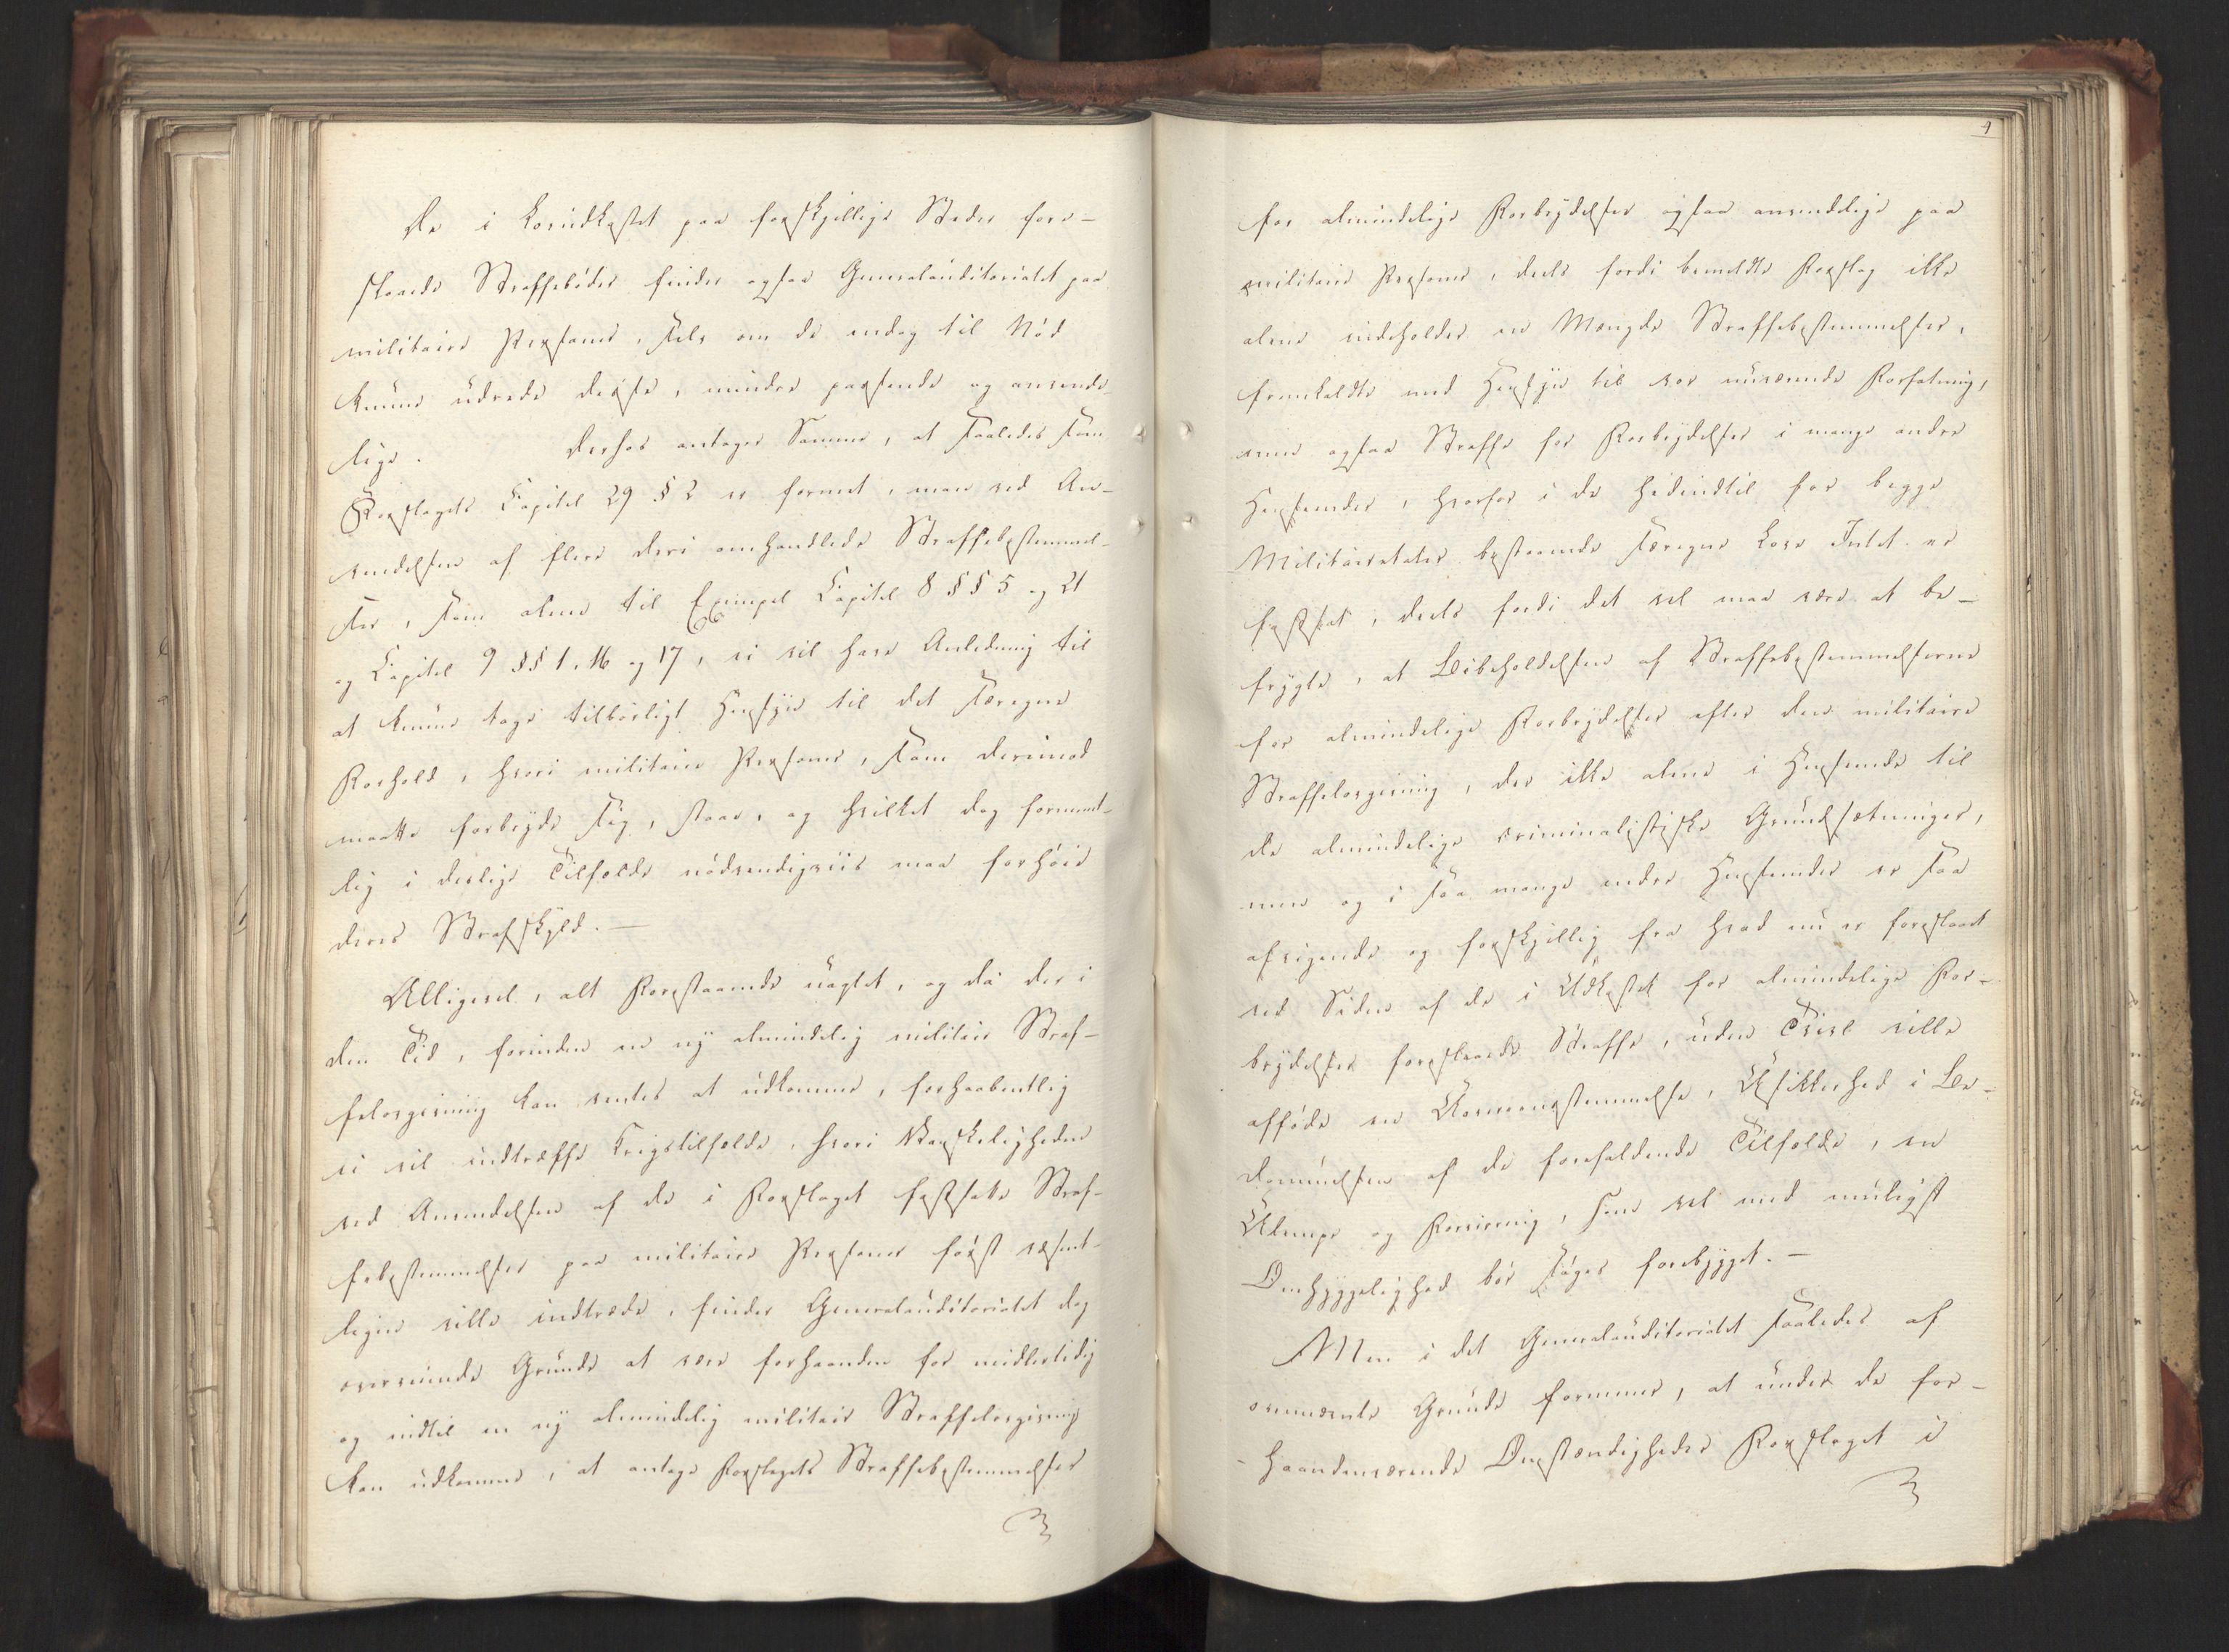 De i Lovudkastet paa forskjellige Steder fore-
slaaede Straffebøder finder ogsaa Generalauditoriatet paa
militaire Personer, selv om de endog til Nød
kunne udrede disse, mindre passende og anvende-
lige. Derhos antager Samme, at saaledes som
Forslagets Capitel 29 § 2 er formet, man ved An-
vendelsen af flere deri omhandlede Straffebestemmel-
ser, som alene til Exempel Capitel 8 §§ 5 og 21
og Capitel 9 §§ 1, 16 og 17, ei vil have Anledning til
at kunne tage tilbørligt Hensyn til det særegne
Forhold, hvori militaire Personer, som derimod
maatte forbryde sig, staae, og hvilket dog forment-
lig i deslige Tilfælde nødvendigviis maa forhøie
deres Strafskyld. —
Alligevel, alt Forestaaende uagtet, og da der i
den Tid, forinden en ny almindelig militair Straf-
felovgivning kan ventes at udkomme, forhaabentlig
ei vil indtræffe Krigstilfælde, hvori Vanskeligheden
ved Anvendelsen af de i Forslaget fastsatte Straf-
febestemmelser paa militaire Personer først væsent-
ligen ville indtræde, finder Generalauditoriatet dog
overveiende Grunde at være forhaanden for midlertidig
og indtil en ny almindelig militair Straffelovgivning
kan udkomme, at antage Forslagets Straffebestemmelser
4
for almindelige Forbrydelser ogsaa anvendelige paa
militaire Personer, deels fordi bemeldte Forslag ikke
alene indeholder en Mængde Straffebestemmelser,
fremkaldte med Hensyn til vor nuværende Forfatning,
men ogsaa Straffe for Forbrydelser i mange andre
Henseender, hvorfor i de hidindtil for begge
Militairetater bestaaende særegne Love Intet er
fastsat, deels fordi det vel maa være at be-
frygte, at Beibeholdelsen af Straffebestemmelserne
for almindelige Forbrydelser efter den militaire
Straffelovgivning, der ikke alene i Henseende til
de almindelige criminalistiske Grundsætninger,
men og i saa mange andre Henseender er saa
afvigende og forskjellig fra hvad nu er foreslaaet
ved Siden af de i Udkastet for almindelige For-
brydelser foreslaaede Straffe, uden Tvivl ville
afføde en Uovereensstemmelse, Usikkerhed i Be-
dømmelsen af de forefaldende Tilfælde, en
Ulempe og Forvirring, som vel med muligst
Omhyggelighed bør søges forebygget. —
Men i det Generalauditoriatet saaledes af
ovennævnte Grunde formener, at under de for-
haandenværende Omstændigheder Forslaget i